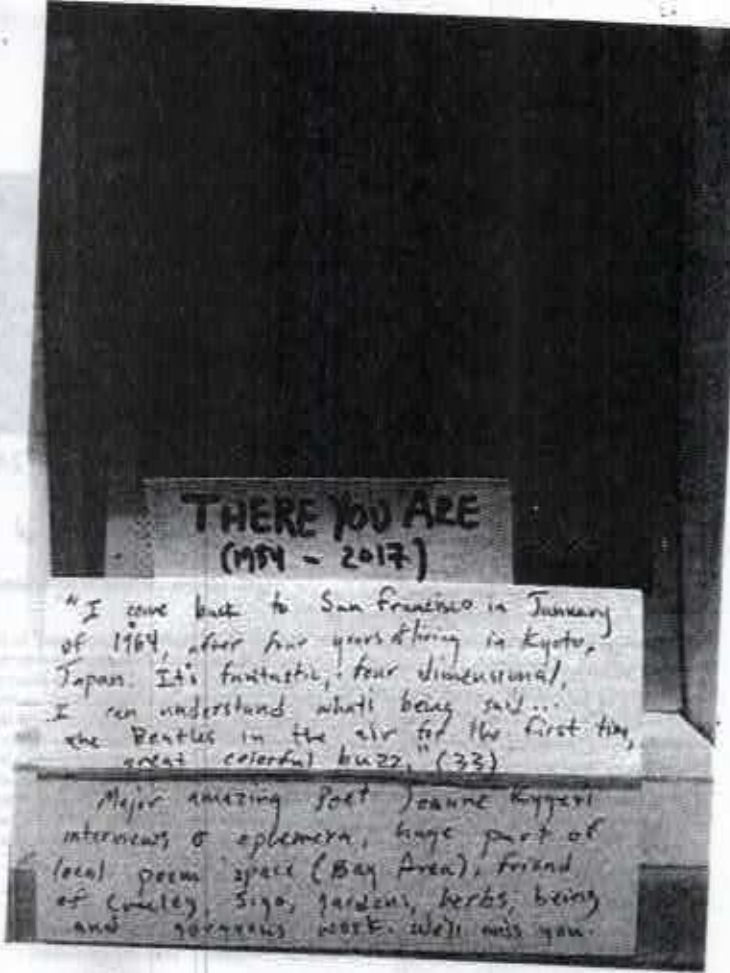 THERE YOU ARE
(1954 - 2017)
"I come back to San Francisco in January
of 1964, after four years of living in Kyoto,
Japan. It's fantastic, four dimensional,
I can understand whats being said...
the Beatles in the air for the first time,
great colorful buzz." (33)
Major amazing Poet Joanne Kyger's
interviews & ephemera, huge part of
local poem space (Bay Area), friend
of Creeley, Sigo, gardens, herbs, being
and gorgeous work. We'll miss you.